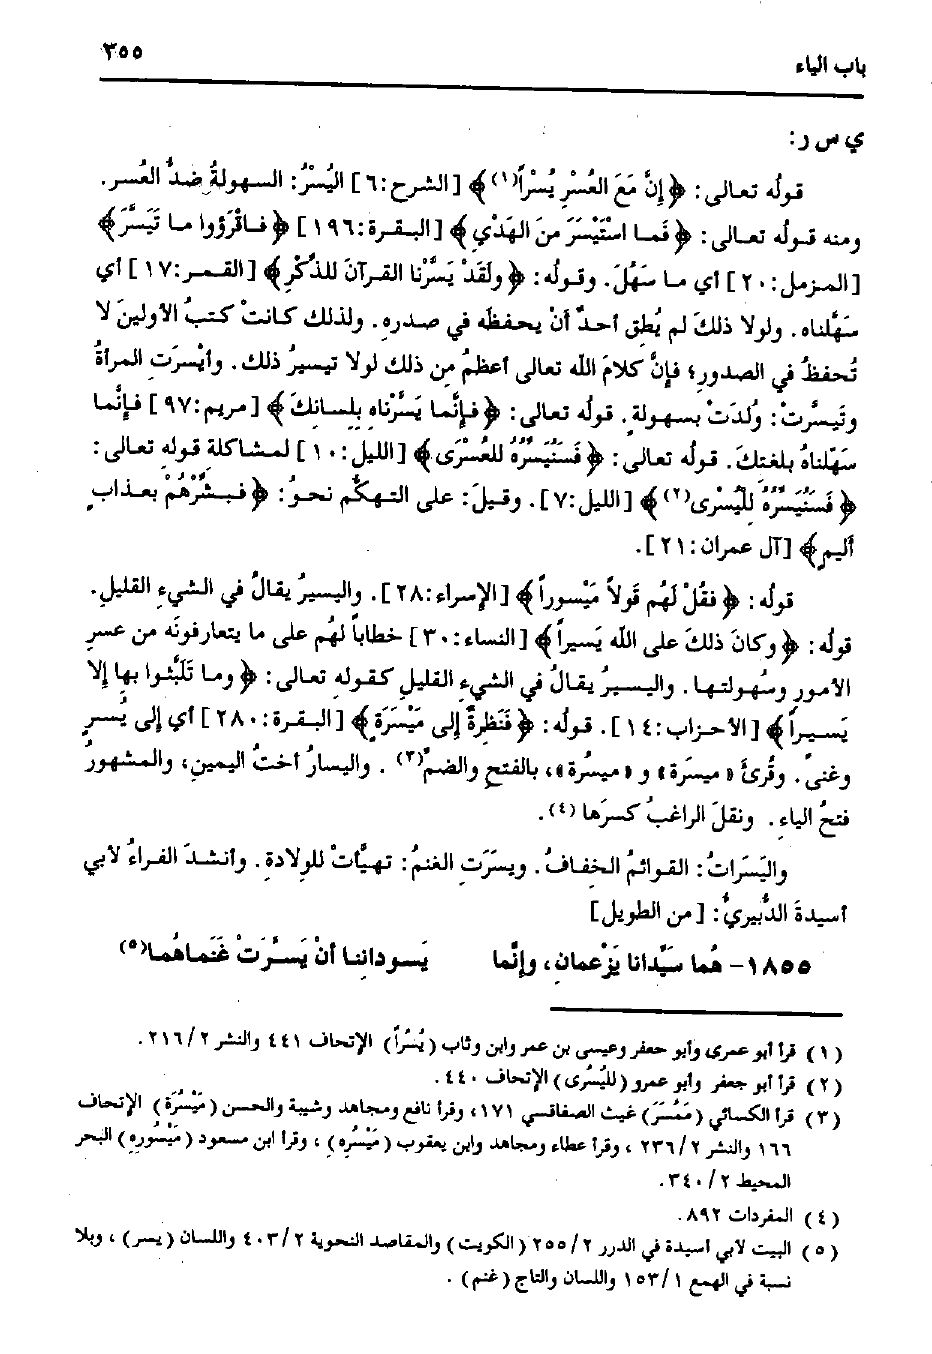 باب الياء ٣٥٥
ي س ر:
قولُه تعالى: ﴿ إنَّ مَعَ العُسْرِ يُسْراً(١) ﴾ [الشرح:٦] اليُسْرُ: السهولةُ ضدُّ العُسر.
ومنه قولُه تعالى: ﴿ فَما اسْتَيْسَرَ منَ الهَدْيِ ﴾ [البقرة:١٩٦] ﴿ فاقْرَؤوا ما تَيَسَّرَ ﴾
[المزمل:٢٠] أي ما سَهُلَ. وقولُه: ﴿ ولَقَدْ يَسَّرْنا القرآنَ للذِّكْرِ ﴾ [القمر:١٧] أي
سَهَّلناه. ولولا ذلكَ لم يُطِق أحدٌ أنْ يحفظَه في صدرِه. ولذلك كانتْ كتبُ الأولينَ لا
تُحفظُ في الصدورِ؛ فإنَّ كلامَ الله تعالى أعظمُ من ذلك لولا تيسيرُ ذلك. وأيْسرَتِ المرأةُ
وتَيسَّرتْ: وُلدَتْ بسهولةٍ. قولُه تعالى: ﴿ فإنَّما يَسَّرْناه بِلسانِكَ ﴾ [مريم:٩٧] فإنَّما
سَهّلناهُ بلغتِكَ. قولُه تعالى: ﴿ فَسَنُيَسِّرُهُ للعُسْرَى ﴾ [الليل:١٠] لمشاكلة قولِه تعالى:
﴿ فَسَنُيَسِّرُهُ لليُسْرى(٢) ﴾ [الليل:٧]. وقيلَ: على التهكُّم نحوُ: ﴿ فبشِّرْهُمْ بعذابٍ
أليمٍ ﴾ [آل عمران:٢١].
قولُه: ﴿ فقُلْ لَهُم قَولاً مَيْسوراً ﴾ [الإسراء:٢٨]. واليسيرُ يقالُ في الشيءِ القليلِ.
قولُه: ﴿ وكانَ ذلكَ على الله يَسيراً ﴾ [النساء:٣٠] خطاباً لهُم على ما يتعارفونَه من عسرِ
الأمورِ وسُهولتها. واليسيرُ يقالُ في الشيءِ القليلِ كقولهِ تعالى: ﴿ وما تَلَبَّثوا بها إلا
يَسيراً ﴾ [الأحزاب:١٤]. قولُه: ﴿ فَنَظِرةٌ إلى مَيْسَرَةٍ ﴾ [البقرة:٢٨٠] أي إلى يُسرٍ
وغنىً. وقُرئَ «ميسَرة» و«ميسُرة»، بالفتحِ والضمِّ(٣). واليسارُ أختُ اليمينِ، والمشهورُ
فتحُ الياءِ. ونقلَ الراغبُ كسرَها (٤).
واليَسَراتُ: القوائمُ الخفافُ. ويسَرَتِ الغنمُ: تهيَّأتْ للولادةِ. وأنشدَ الفراءُ لأبي
أسيدةَ الدُّبيريُّ: [من الطويل]
١٨٥٥- هُما سيِّدانا يَزْعمانِ، وإنَّما يَسوداننا أنْ يَسَّرَتْ غَنَماهُما(٥)
(١) قرأ أبو عمرى وأبو جعفر وعيسى بن عمر وابن وثاب (يُسُراً) الإتحاف ٤٤١ والنشر ٢/٢١٦.
(٢) قرأ أبو جعفر وأبو عمرو (لليُسُرى) الإتحاف ٤٤٠.
(٣) قرأ الكسائي غيث الصفاقسي ١٧١، وقرأ نافع ومجاهد وشيبة والحسن (مَيْسُرَة) الإتحاف
١٦٦ والنشر ٢/٢٣٦، وقرأ عطاء ومجاهد وابن يعقوب (مَيْسُرِه)، وقرأ ابن مسعود (مَيْسُورِه) البحر
المحيط ٢/٣٤٠.
(٤) المفردات ٨٩٢.
(٥) البيت لأبي أسيدة في الدرر ٢/٢٥٥ (الكويت) والمقاصد النحوية ٢/٤٠٣ واللسان (يسر)، وبلا
نسبة في الهمع ١/١٥٣ واللسان والتاج (غنم).